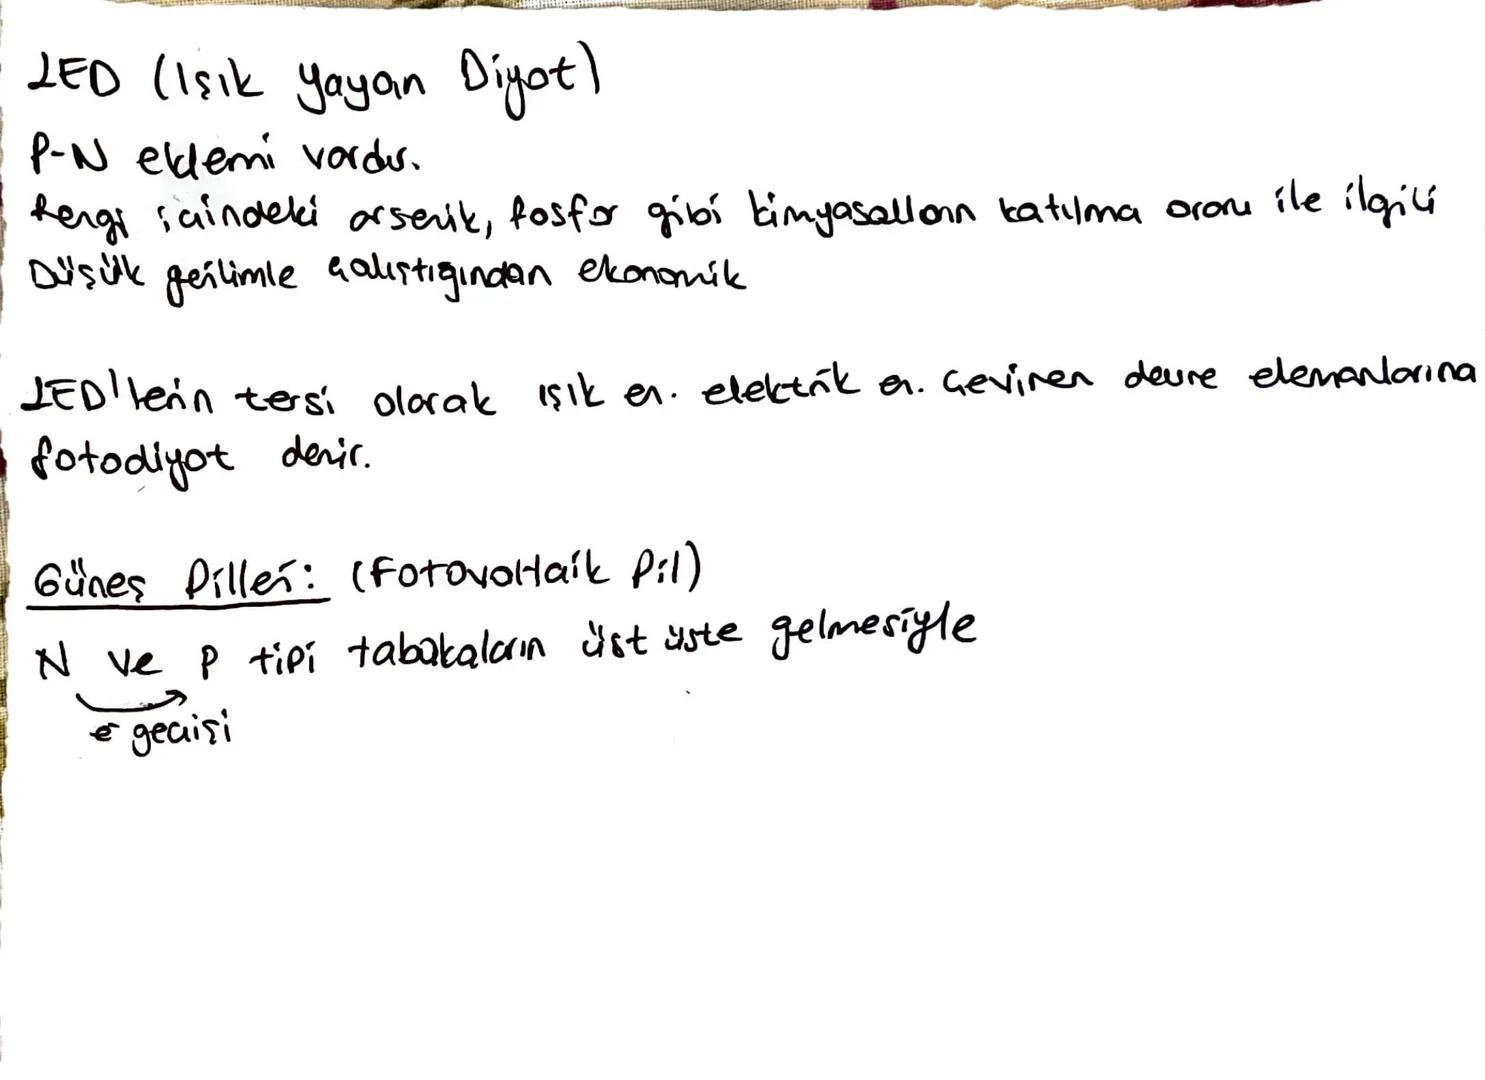 LED (Işık Yayan Diyot)
P-N eklemi vardır.
Rengi içindeki arsenik, fosfor gibi kimyasalların katılma oranı ile ilgili
Düşük gerilimle çalıştığından ekonomik
LED'lerin tersi olarak ışık en. elektrik en. çeviren devre elemanlarına
fotodiyot denir.
Güneş Pilleri: (Fotovoltaik Pil)
N ve P tipi tabakaların üst üste gelmesiyle
e⁻ geçişi